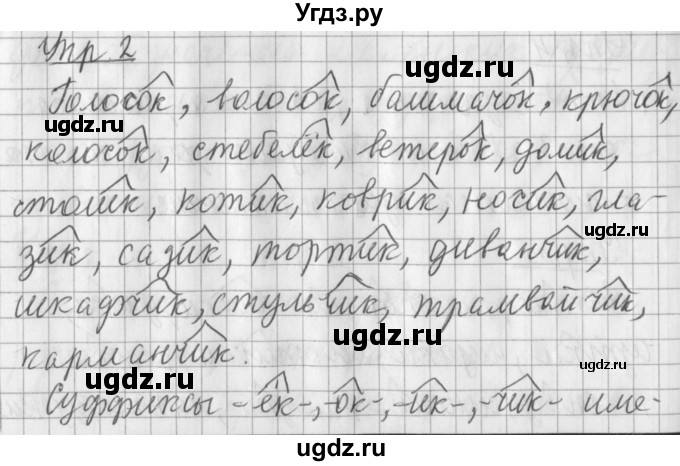 Угдз.ру
Упр. 2
Голосок, волосок, башмачок, крючок,
колосок, стебелёк, ветерок, домик,
столик, котик, коврик, носик, гла-
зик, сазик, тортик, диванчик,
шкафчик, стульчик, трамвайчик,
карманчик.
Суффиксы -ек-, -ок-, -ик-, -чик- име-
ugdz.ru
ugdz.ru
ugdz.ru
ugdz.ru
ugdz.ru
ugdz.ru
ugdz.ru
ugdz.ru